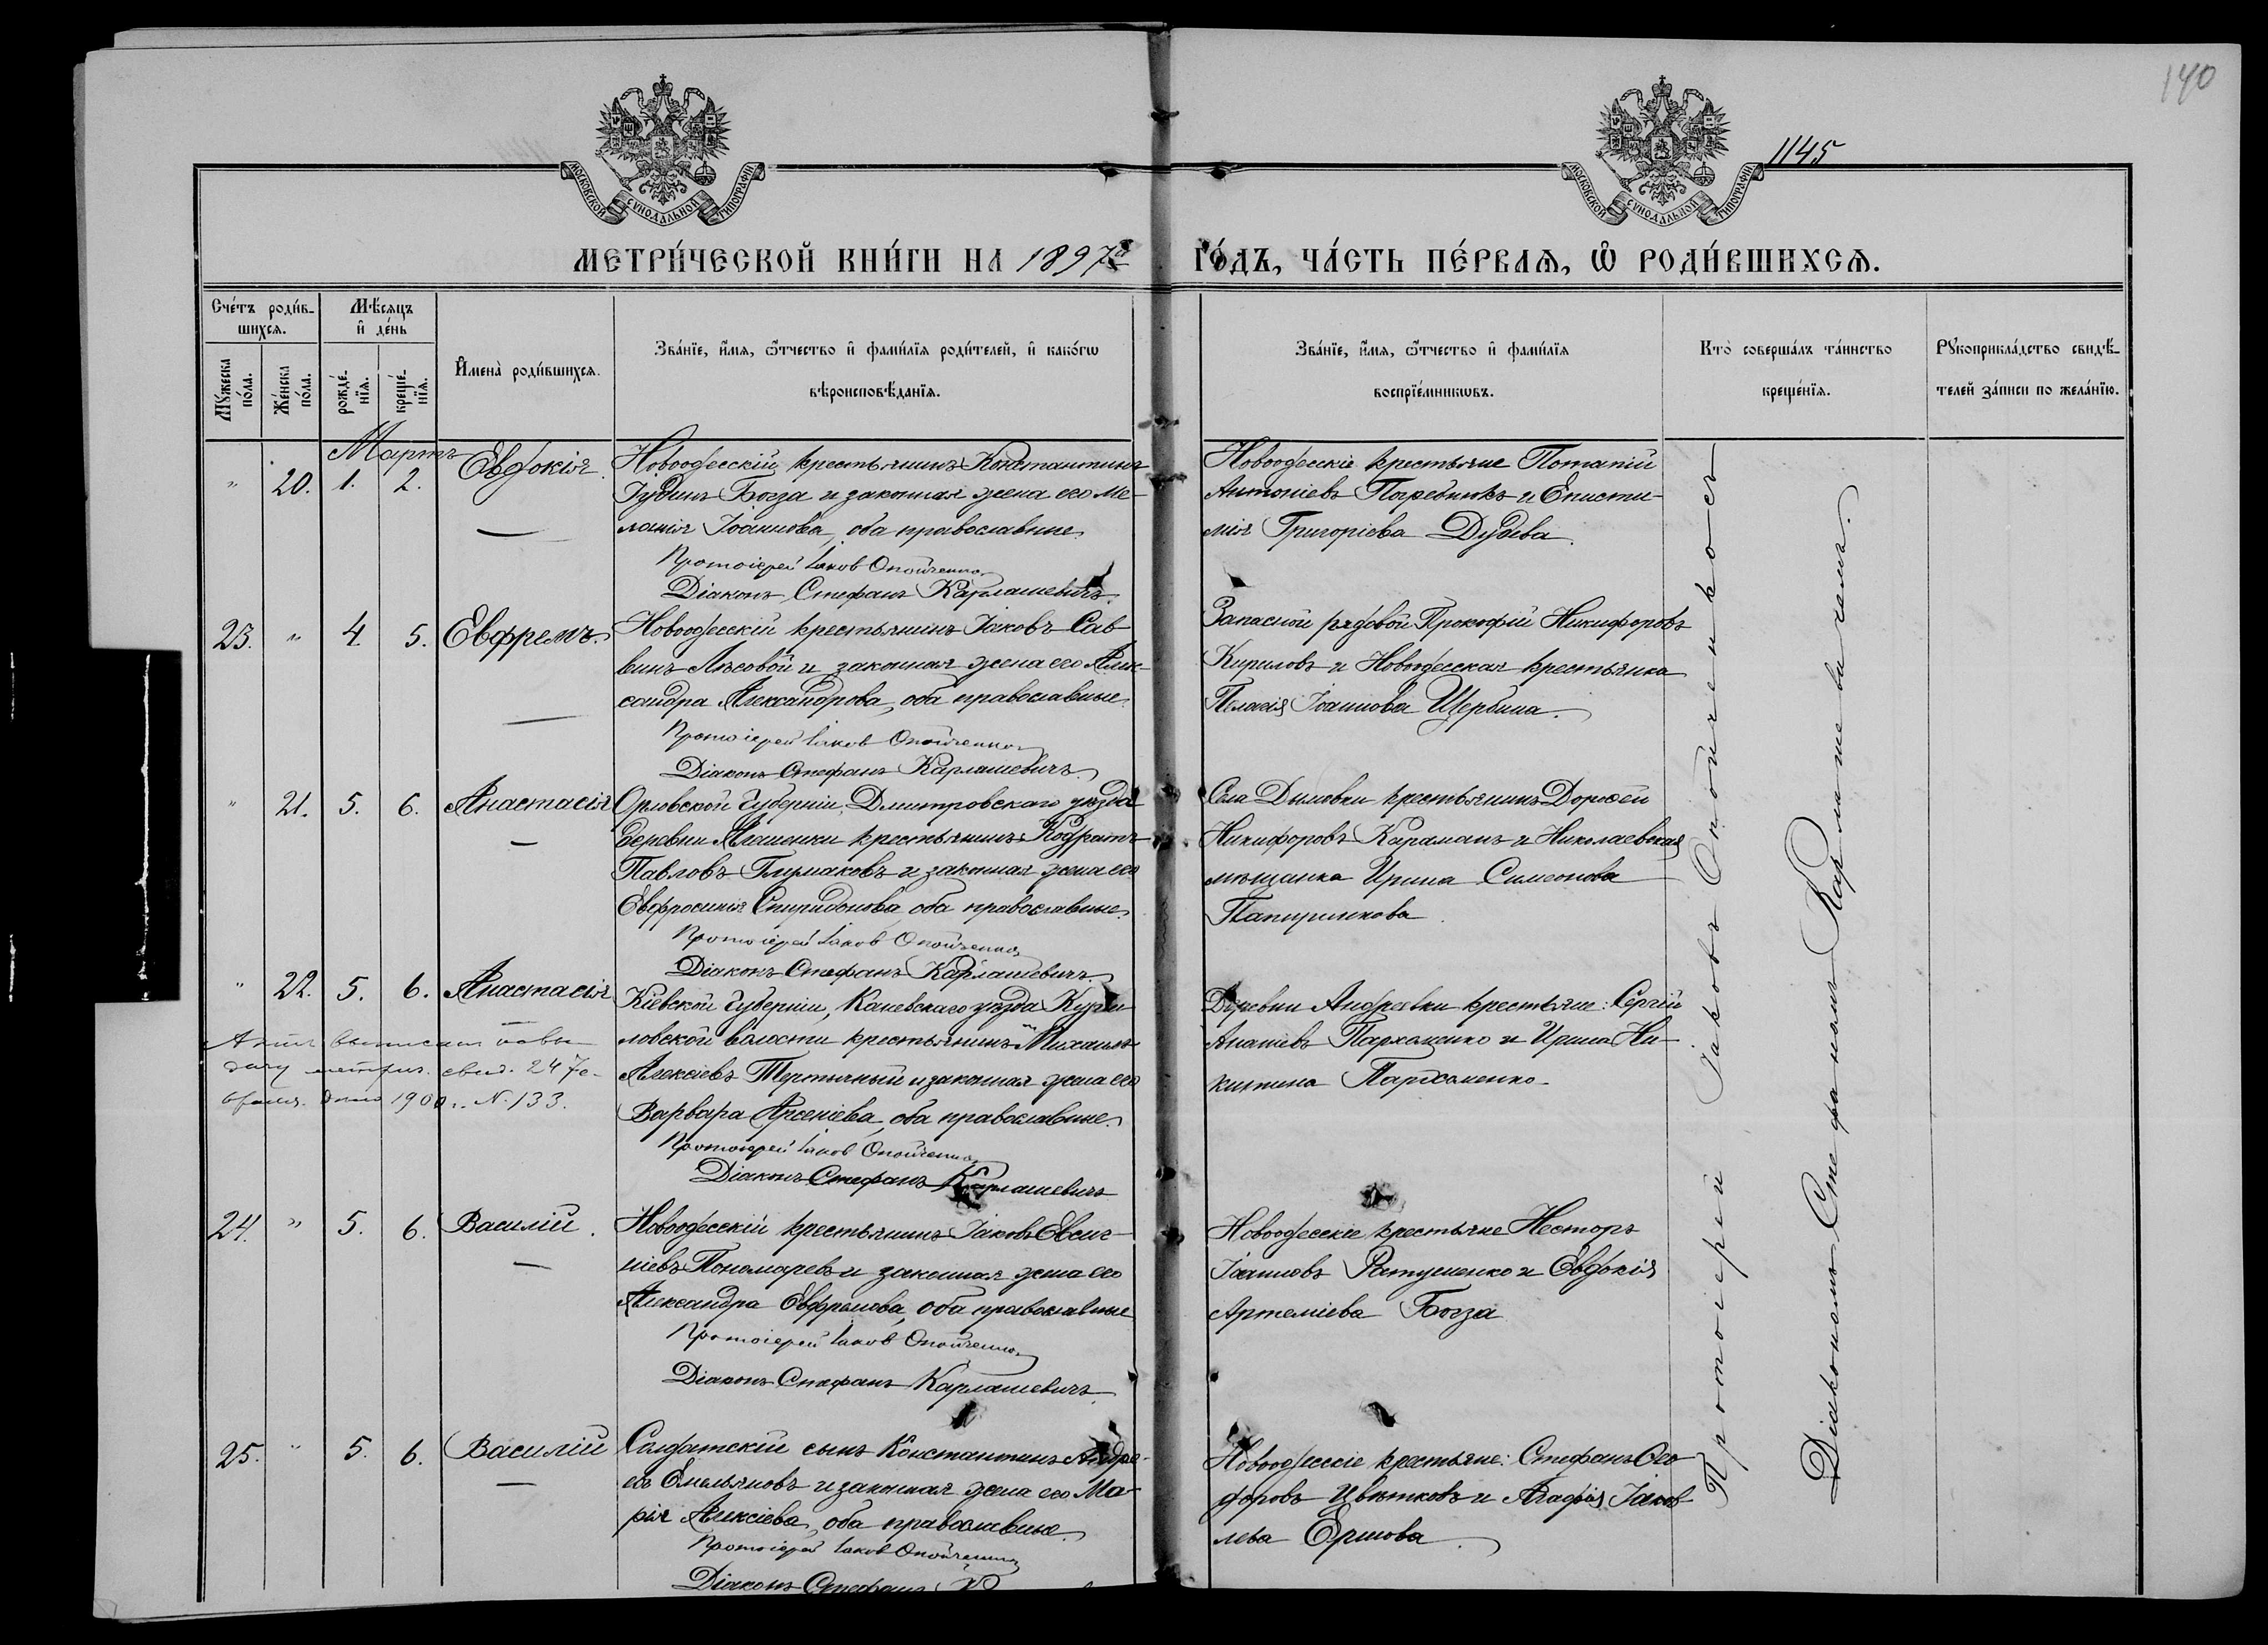 140
1145
МОСКОВСКОЙ СѴНОДАЛЬНОЙ ТИПОГРАФІИ
МОСКОВСКОЙ СѴНОДАЛЬНОЙ ТИПОГРАФІИ
МЕТРИ́ЧЕСКОЙ КНИ́ГИ НА 1897й ГО́ДЪ, ЧА́СТЬ ПЕ́РВАѦ, Ѡ҆ РОДИ́ВШИХСѦ.
Сче́тъ роди́в-
шихсѧ.
Мꙋжеска по́ла.
Же́нска по́ла.
Мѣ́сѧцъ
и҆ де́нь
рожде́-
нїѧ.
креще́-
нїѧ.
И҆мена̀ роди́вшихсѧ.
Зва́нїе, и҆́мѧ, ѻ҆́тчество и҆ фами́лїѧ роди́телей, и҆ како́гѡ
вѣроисповѣ́данїѧ.
Зва́нїе, и҆́мѧ, ѻ҆́тчество и҆ фами́лїѧ
воспрїе́мникѡвъ.
Кто̀ соверша́лъ та́инство
креще́нїѧ.
Рꙋкоприкла́дство свидѣ́-
телей за́писи по жела́нїю.
Мартъ
" 20. 1. 2. Евдокія
Новоодесскій крестьянинъ Константинъ
Іудинъ Богза и законная жена его Ме-
ланія Іоаннова, оба православные
Протоіерей Іаков Опойченко
Діаконъ Стефанъ Карлашевичъ.
Новоодесскіе крестьяне Потапій
Антоніевъ Погребнякъ и Еписти-
мія Григоріева Дудева.
23. " 4. 5. Евфремъ.
Новоодесскій крестьянинъ Іаковъ Сав-
винъ Лѣсовой и законная жена его Алек-
сандра Александрова, оба православные.
Протоіерей Іаков Опойченко
Діаконъ Стефанъ Карлашевичъ.
Запасной рядовой Прокофій Никифоровъ
Кириловъ и Новоодесская крестьянка
Пелагія Іоаннова Щербина.
" 21. 5. 6. Анастасія
Орловской губерніи, Дмитровскаго уѣзда
деревни Алешенки крестьянинъ Кодратъ
Павловъ и законная жена его
Евфросинія Спиридонова, оба православные.
Протоіерей Іаков Опойченко
Діаконъ Стефанъ Карлашевичъ.
Села Дымовки крестьянинъ Дорофей
Никифоровъ Караманъ и Николаевская
мѣщанка Ирина Симеонова
" 22. 5. 6. Анастасія
дачу метрич. свид. 24 Фе-
враля 1900 г. N. 133.
Кіевской губерніи, Каневскаго уѣзда
ловской волости крестьянинъ Михаилъ
Алексіевъ Тертычный и законная жена его
Варвара Арсеніева, оба православные.
Протоіерей Іаков Опойченко
Діаконъ Стефанъ Карлашевичъ
Деревни Андреевки крестьяне: Сергій
Ананіевъ Пархоменко и Ирина Ни-
китина Пархоменко
24. " 5. 6. Василій.
Новоодесскій крестьянинъ Іаковъ Евсиг-
ніевъ Пономаревъ и законная жена его
Александра Евфремова, оба православные
Протоіерей Іаков Опойченко
Діаконъ Стефанъ Карлашевичъ.
Новоодесскіе крестьяне Несторъ
Іоанновъ Ратушенко и Евдокія
Артеміева Богза
25. " 5. 6. Василій
Солдатскій сынъ Константинъ Андре-
евъ Емельяновъ и законная жена его Ма-
рія Алексіева, оба православные.
Протоіерей Іаков Опойченко
Діаконъ Стефанъ
Новоодесскіе крестьяне: Стефанъ Ѳео-
доровъ Цвѣтковъ и Агафія Іаков-
лева Ершова.
Протоіерей Іаковъ Опойченко съ
Діакономъ Стефаномъ Карлашевичемъ.